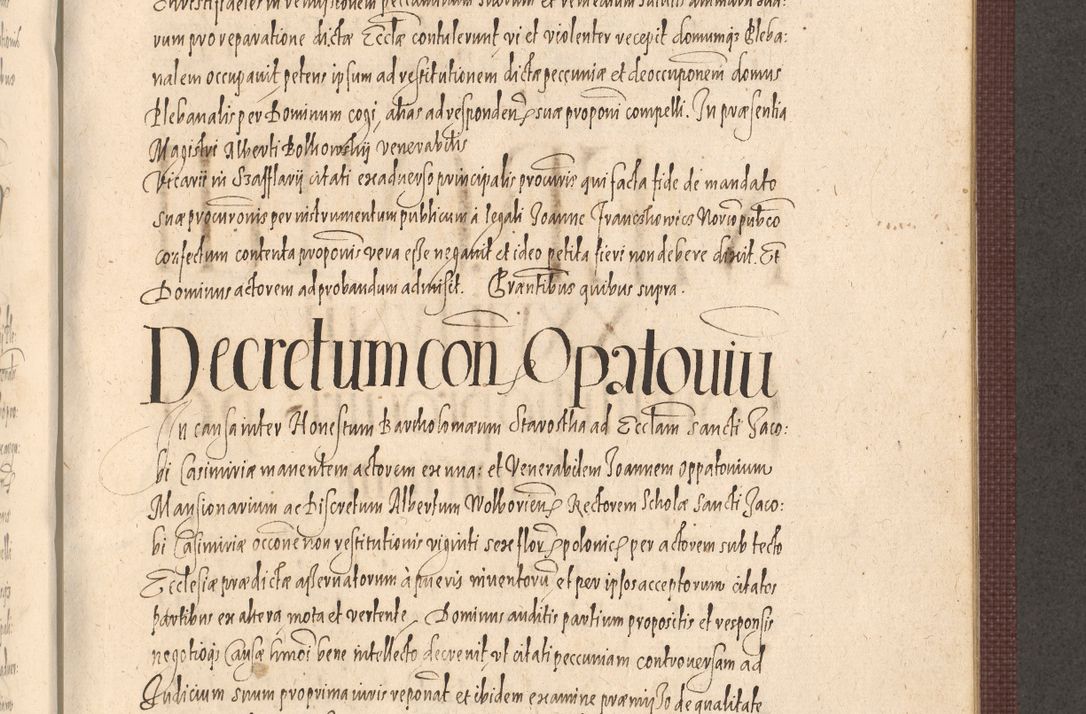 rum pro reparatione dictæ Eccłæ contulerunt vi et violenter recepit domumq3 Pleba:
nalem occupavit petens ipsum ad restitutionem dictæ peccuniæ et de occuponem domus
Plebanalis per Dominum cogi, alias ad respondend suæ proponi compelli. In præsentia
Magistri Alberti Bolkowskij venerabilis
Vicarii in Szafflarij citati ex adverso principalis procuris qui facta fide de mandato
suæ procuronis per instrumentum publicum à legali Joanne Franczkowicz Norio pubco
confectum contenta proponis vera esse negavit et ideo petita fieri non debere dixit. Et
Dominus actorem ad probandum admisit. Præntibus quibus supra.
Decretum con Opatouiu
In causa inter Honestum Bartholomæum Starostka ad Ecclam Sancti Jaco:
bi Casimiriæ manentem actorem ex una: et Venerabilem Joannem oppatouium
Mansionarium ac Discretum Albertum Wolborien Rectorem Scholæ Sancti Jaco:
bi Casimiriæ occone non restitutionis viginti sex flor polonic per actorem sub tecto
Ecclesiæ prædictæ asservatorum à pueris inventoru et per ipsos acceptorum citatos
partibus ex altera mota et vertente, Dominus auditis partium propositis et responsis
negotioq3 Causæ hmoi bene intellecto decrevit, vt citati peccuniam controversam ad
Judicium suum pro prima iuris reponat et ibidem examine præmisso de qualitate